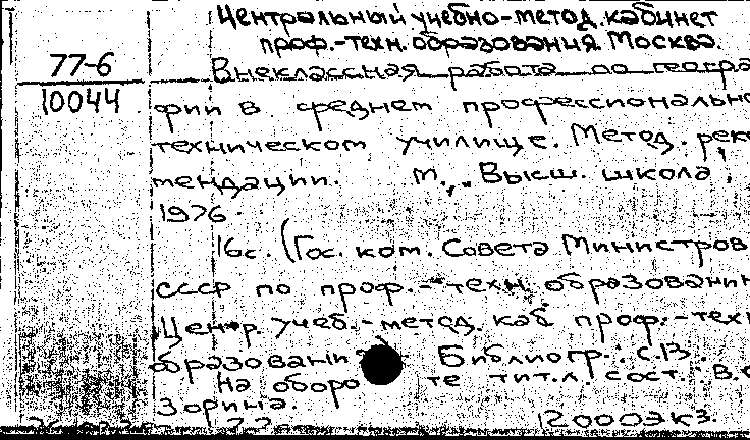 Центральный учебно-метод. кабинет
проф.-техн. образования. Москва.
77-6
10044
Внеклассная работа по геогра
фии в среднем профессионально
техническом училище. Метод. рек
мендации. М., "Высш. школа",
1976.
16с. (Гос. ком. Совета Министров
СССР по проф.-техн. образованию
Центр. учеб.-метод. каб. проф.-техн
образовани Библиогр.: с.13.
На оборо те тит.л. сост.: В.
Зорина.
12000экз.